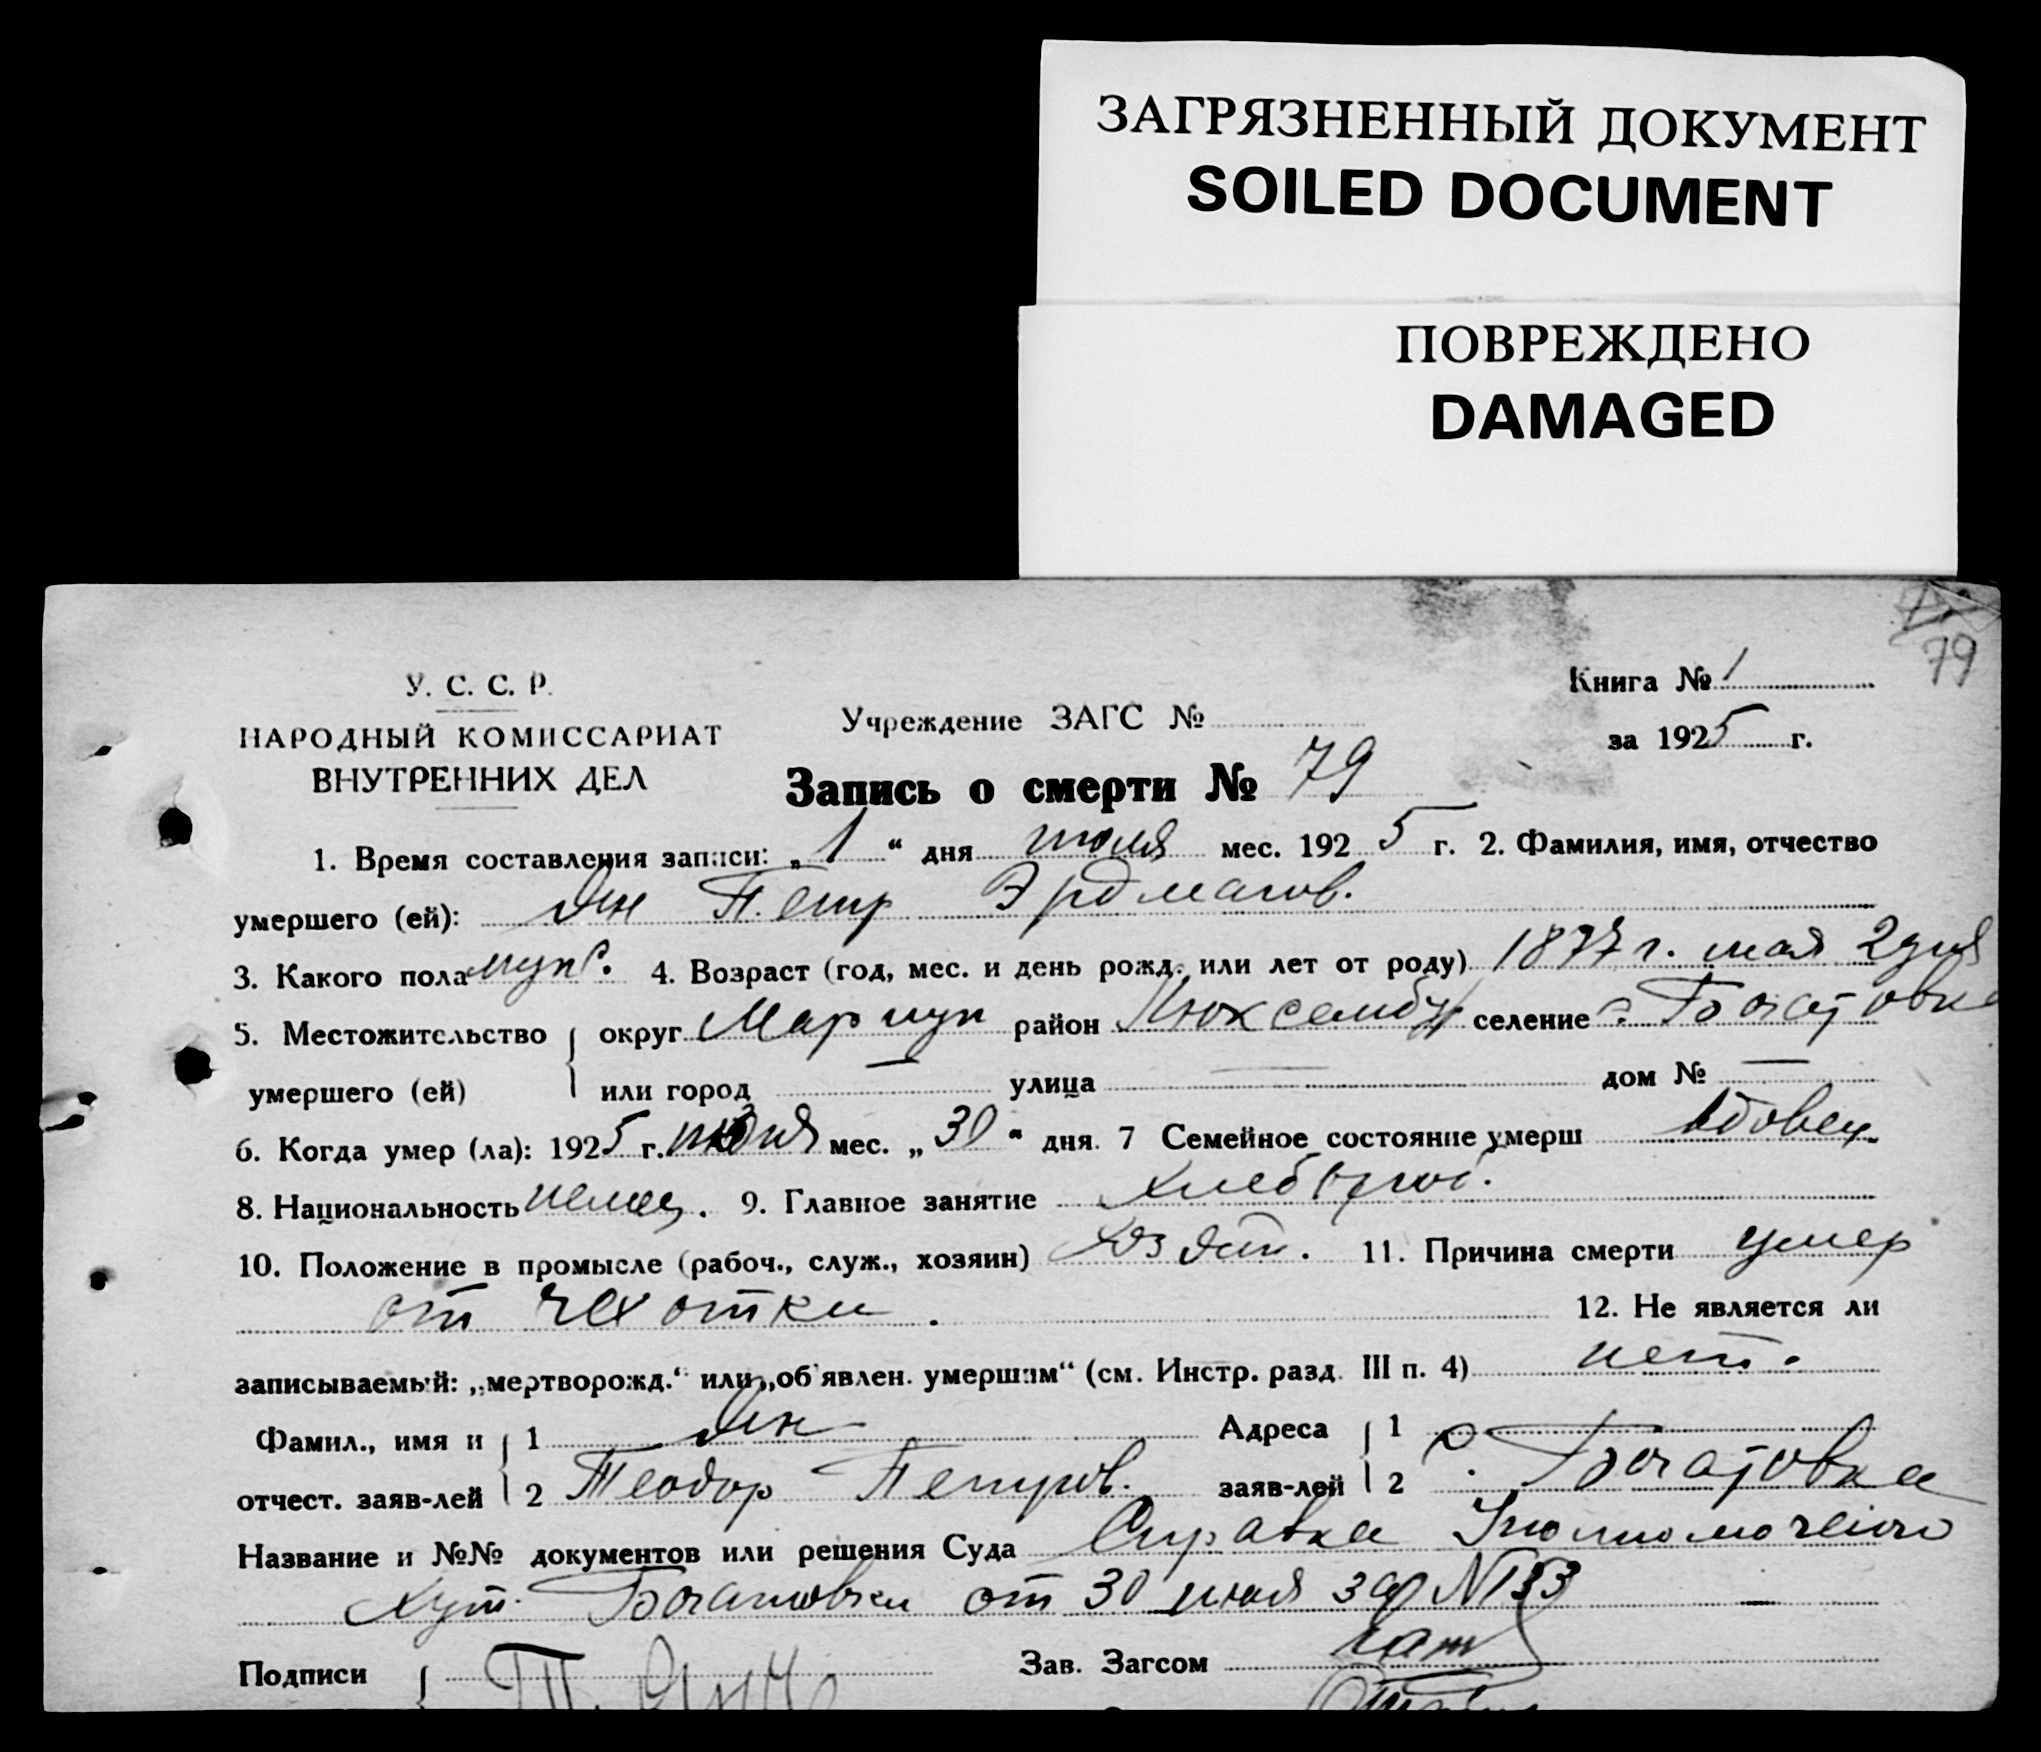 ЗАГРЯЗНЕННЫЙ ДОКУМЕНТ
SOILED DOCUMENT
ПОВРЕЖДЕНО
DAMAGED
79
У. С. С. Р.
НАРОДНЫЙ КОМИССАРИАТ
ВНУТРЕННИХ ДЕЛ
Учреждение ЗАГС №
Книга № 1
за 1925 г.
Запись о смерти № 79
1. Время составления записи: „1“ дня июля мес. 1925 г. 2. Фамилия, имя, отчество
умершего (ей): Ян Петр Эрдманов.
3. Какого пола муж. 4. Возраст (год, мес. и день рожд. или лет от роду) 1877 г. мая 2 дня
5. Местожительство округ Мариуп район Люксембур селение с. Богатовка
умершего (ей) или город — улица — дом № —
6. Когда умер (ла): 1925 г. июня мес. „30“ дня. 7 Семейное состояние умерш вдовец.
8. Национальность немец. 9. Главное занятие хлебороб.
10. Положение в промысле (рабоч., служ., хозяин) 11. Причина смерти умер
от чахотки.
12. Не является ли
записываемый: „мертворожд.“ или „об'явлен. умершим“ (см. Инстр. разд. III п. 4) нет.
Фамил., имя и 1 Ян Адреса 1
отчест. заяв-лей 2 Теодор Петров. заяв-лей 2 с. Богатовка
Название и №№ документов или решения Суда Справка Уполномоченого
Хут. Богатовки от 30 июня за № 33 —
Подписи Т. Янн Зав. Загсом